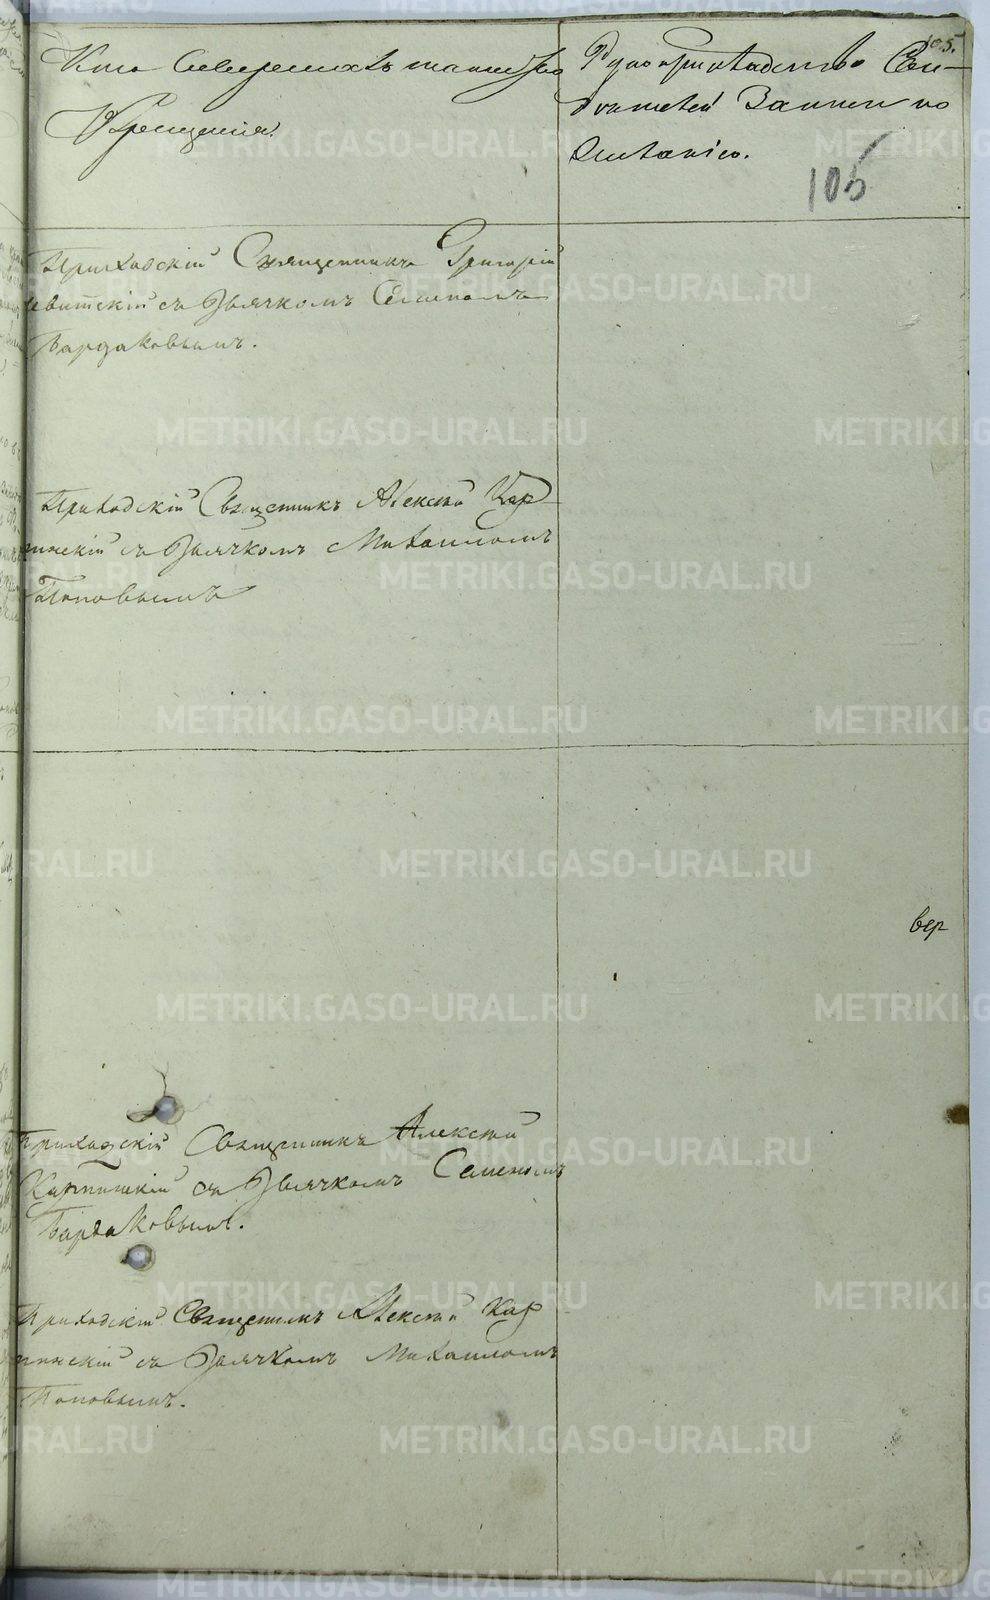 105.
Кто Совершалъ таинство
Крещенія.
Рукоприкладство Сви-
дѣтелей Записи по
желанію.
105
Приходскій Священникъ Григорій
Левитскій съ Дьячкомъ Семеномъ
Бардаковымъ.
Приходскій Священникъ Алексѣй Кар-
пинскій съ Дьячкомъ Михаиломъ
Поповымъ
вер
Приходскій Священникъ Алексѣй
Карпинскій съ Дьячкомъ Семеномъ
Бардаковымъ.
Приходскій Священникъ Алексѣй Кар
пинскій съ Дьячкомъ Михаиломъ
Поповымъ.
METRIKI.GASO-URAL.RU